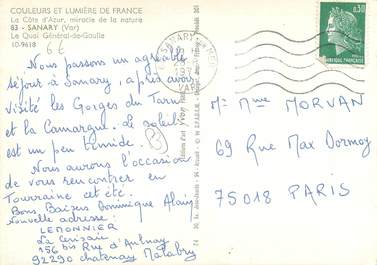 COULEURS ET LUMIÈRE DE FRANCE
La Côte d'Azur, miracle de la nature
83 - SANARY (Var)
Le Quai Général-de-Gaulle
10-9618
6€
Nous passons un agréable
séjour à Sanary, après avoir
visité les Gorges du Tarn
et la Camargue. Le soleil
est un peu timide.
Nous aurons l'occasion
de vous rencontrer en
Touraine cet été.
Bons Baisers Dominique Alain
Nouvelle adresse :
LEMONNIER
La Cerisaie
156 bis Rue d'Aulnay
92290 chatenay Malabry
SANARY
VAR
0,30
RÉPUBLIQUE FRANÇAISE
Mr Mme MORVAN
69 Rue Max Dormoy
75018 PARIS